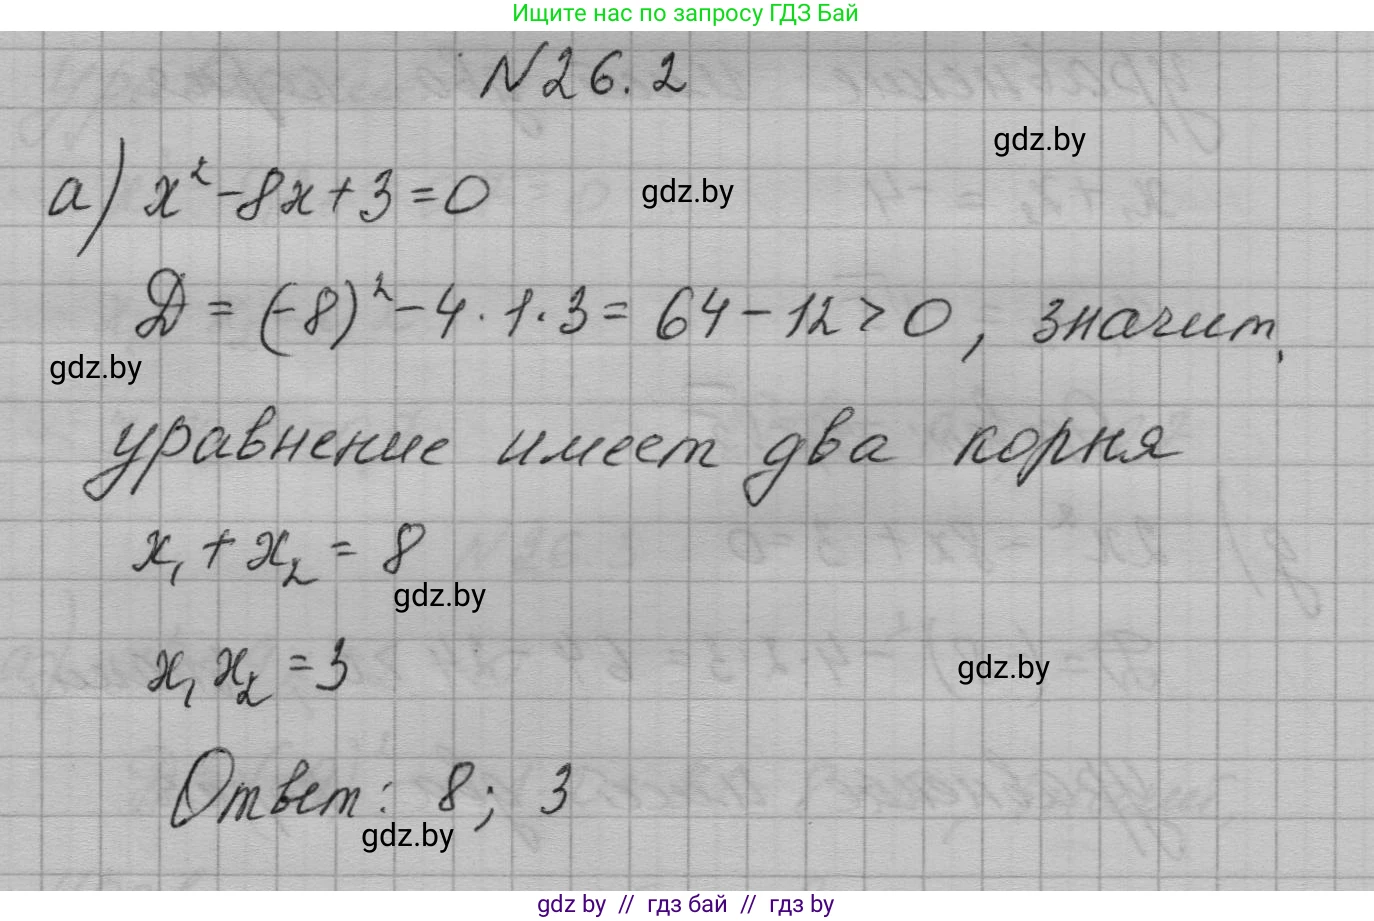 Ищите нас по запросу ГДЗ Бай
№26.2
gdz.by
а) x² - 8x + 3 = 0
gdz.by
Д = (-8)² - 4 · 1 · 3 = 64 - 12 > 0, значит,
gdz.by
уравнение имеет два корня
x₁ + x₂ = 8
gdz.by
x₁ x₂ = 3
gdz.by
Ответ: 8; 3
gdz.by
gdz by // гдз бай // гдз by